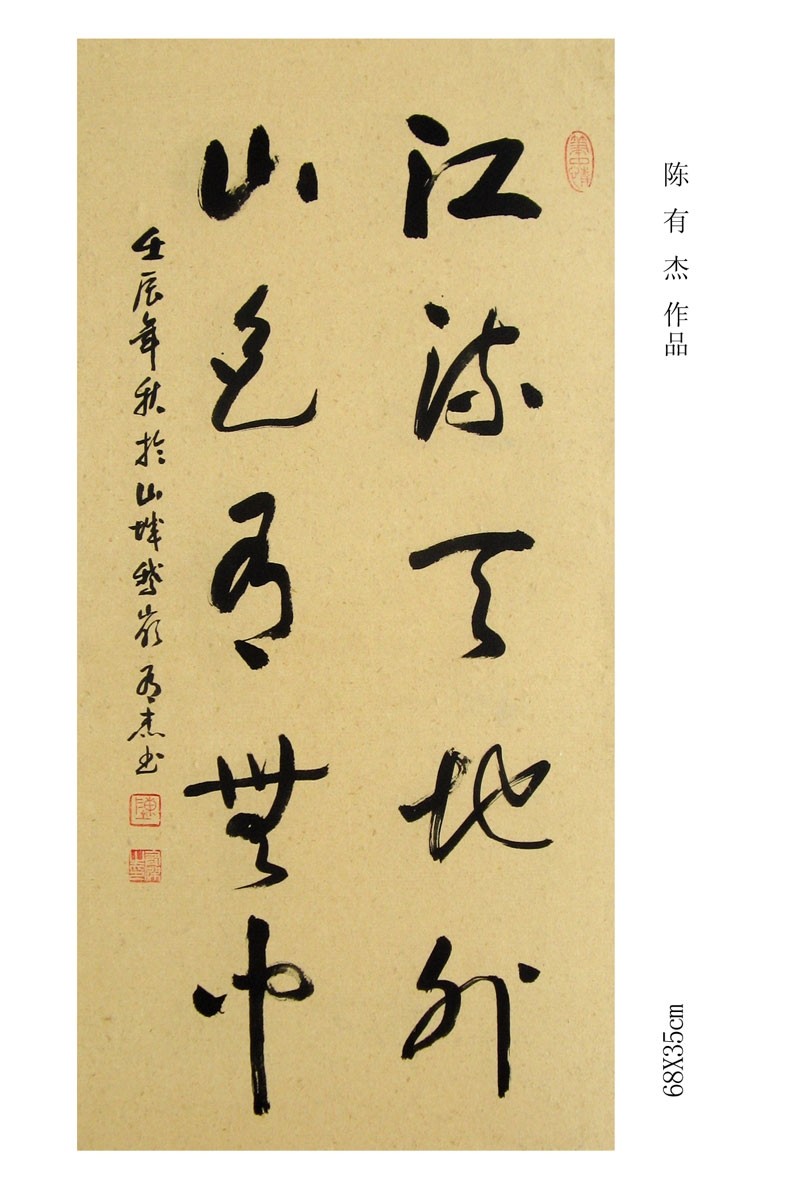 江流天地外
山色有無中
壬辰年秋於山城鵝嶺有杰書
陈有杰作品
68X35cm